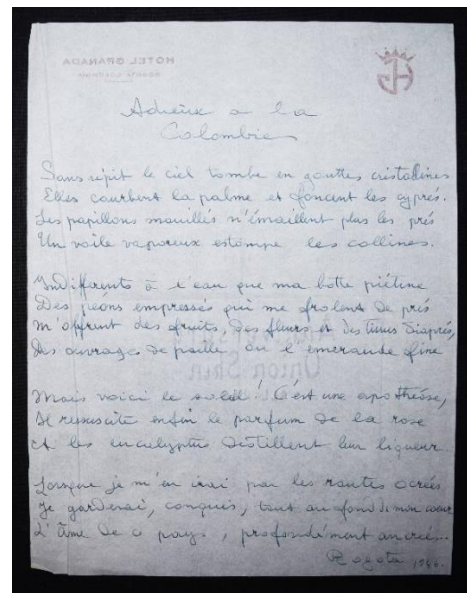 HOTEL GRANADA
Adieux a la
Colombie
Sans répit le ciel tombe en gouttes cristallines
Elles courbent la palme et foncent les cyprés.
Les papillons mouillés n'émaillent plus les prés
Un voile vaporeux estompe les collines.
Indifférents à l'eau que ma botte piétine
Des péons empressés qui me frolent de prés
M'offrent des fruits, des fleurs et des tissus diaprés,
Des ouvrages de paille ou l'emeraude fine
Mais voici le soleil! C'est une apothéose,
Il ressuscite enfin le parfum de la rose
Et les eucalyptus distillent leur liqueur.
Lorsque je m'en irai par les routes ocrées
Je garderai, conquis, tout au fond de mon coeur
L'âme de ce pays, profondément ancrée...
Bogota 1946.
Union Skin